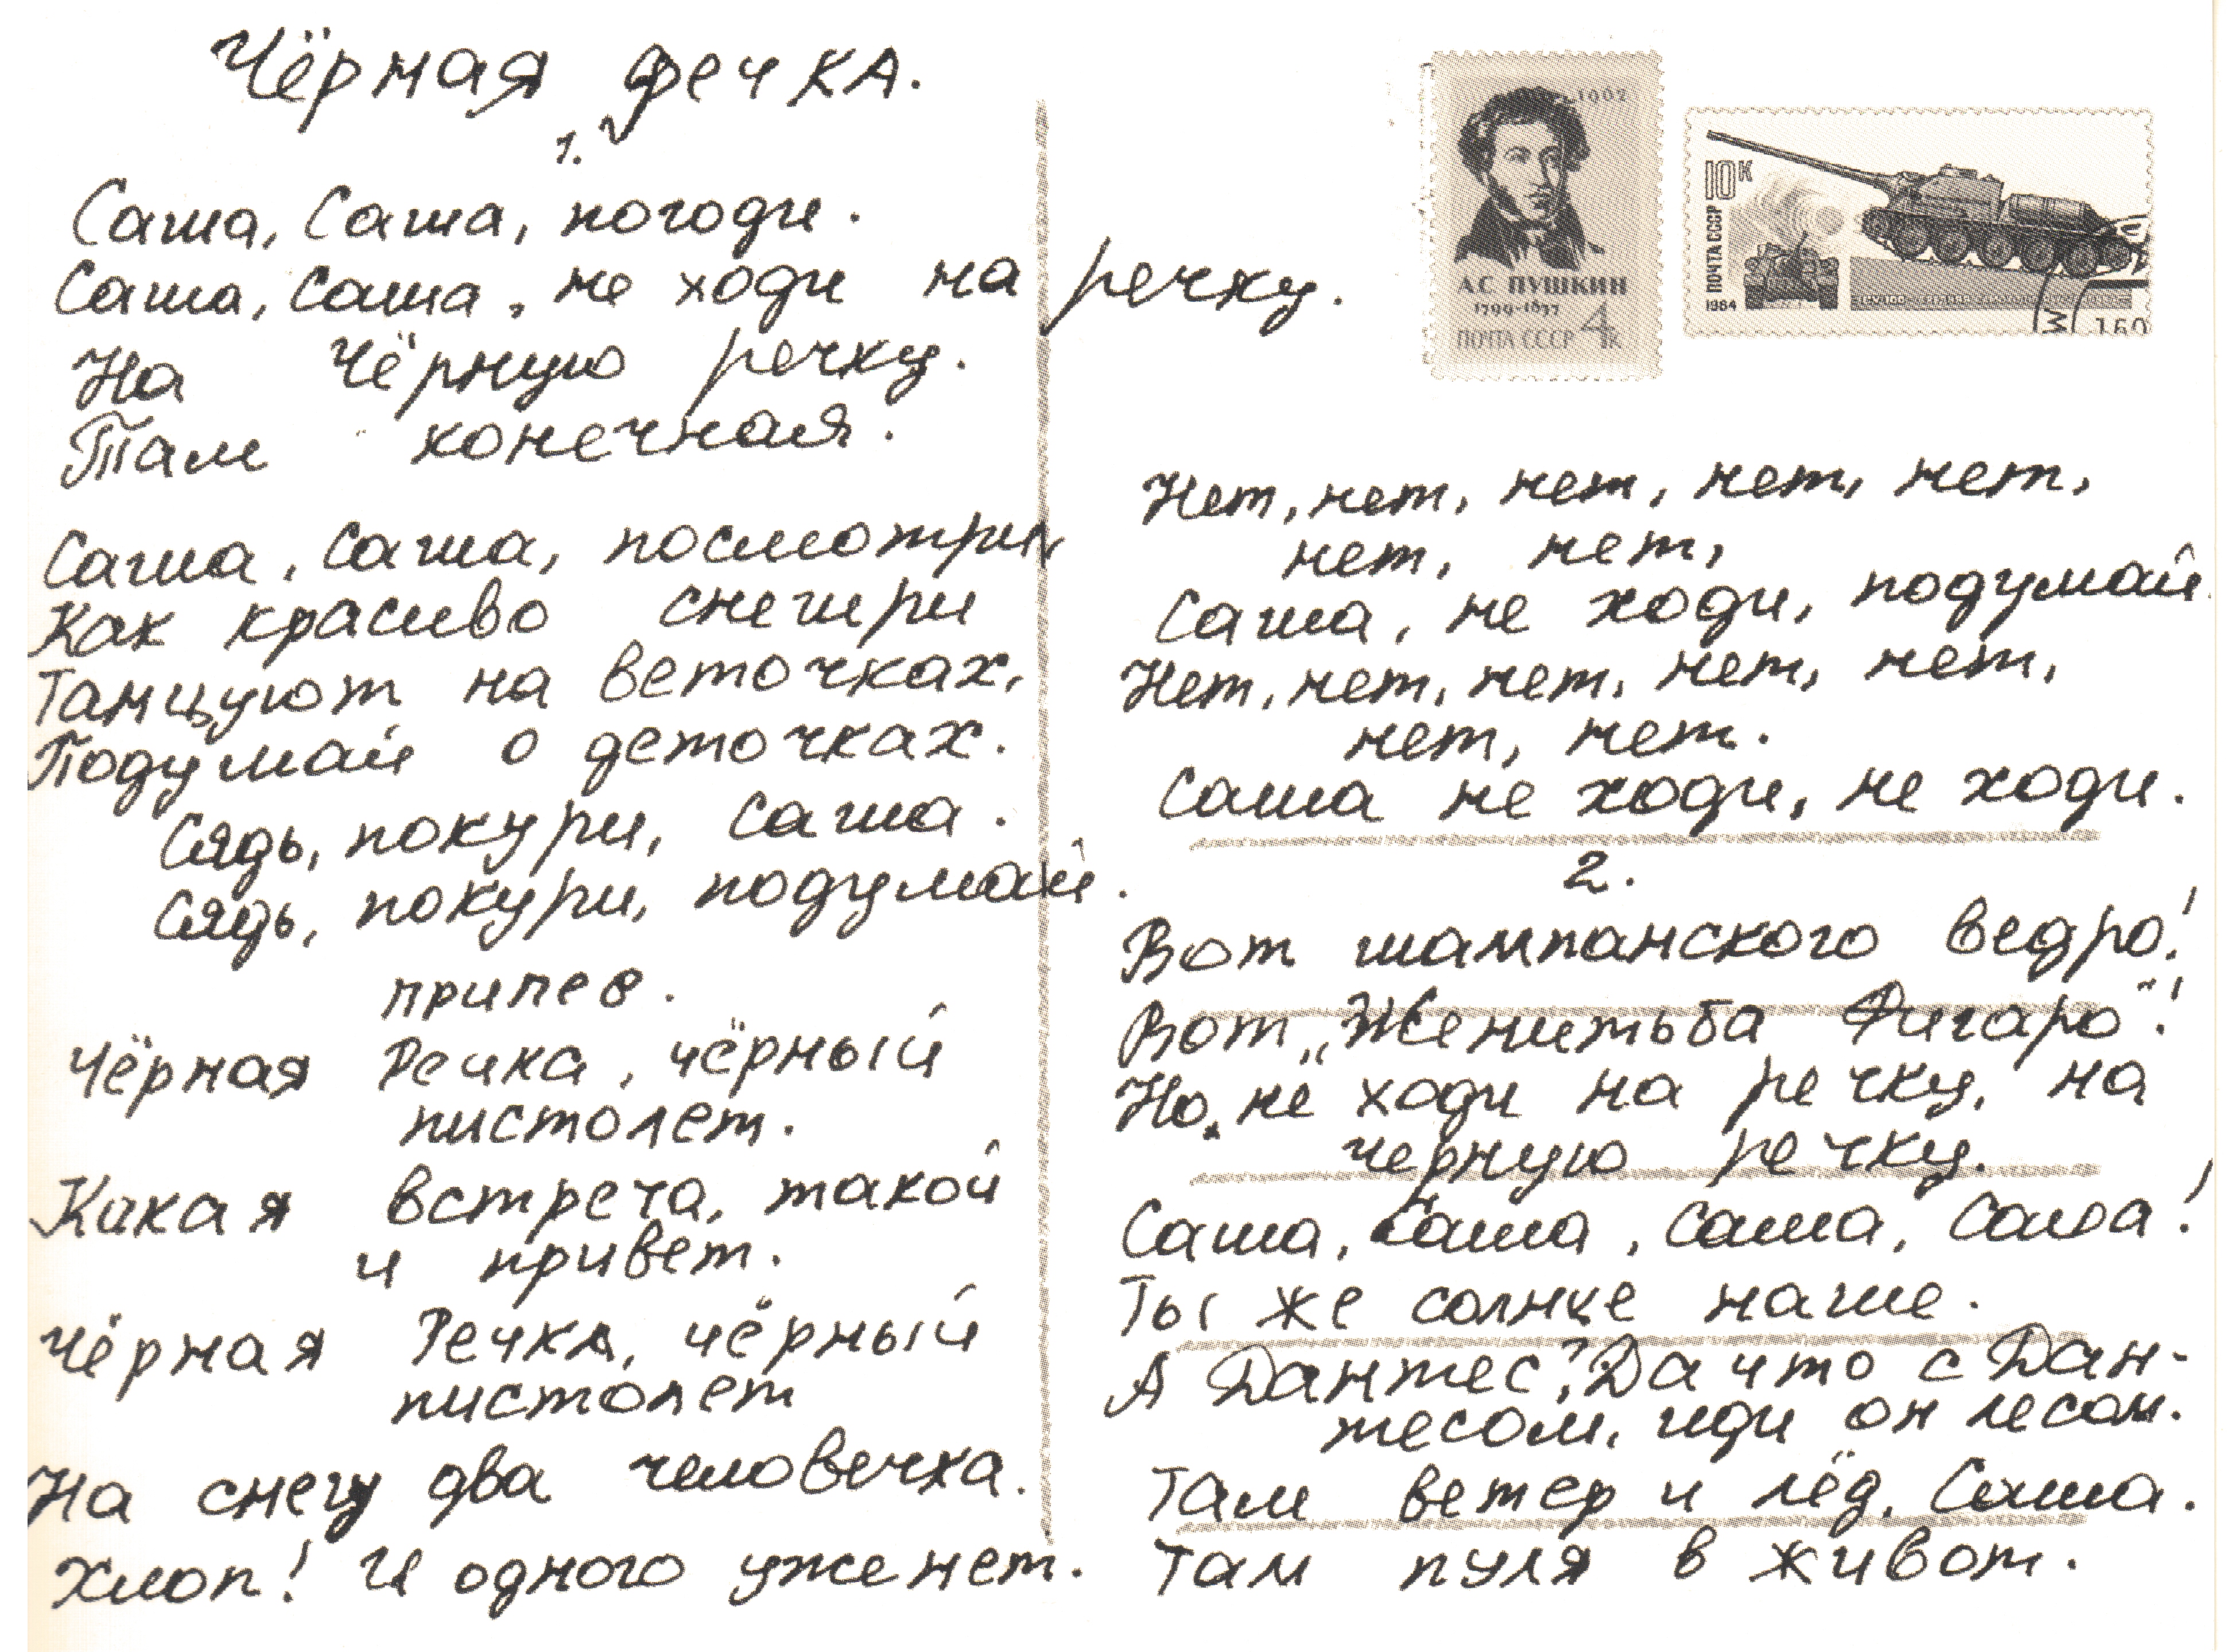 Чёрная речка.
1.
Саша, Саша, погоди.
Саша, Саша, не ходи на речку.
На Чёрную речку.
Там конечная.
Саша, Саша, посмотри,
Как красиво снегири
Танцуют на веточках,
Подумай о деточках.
Сядь, покури, Саша.
Сядь, покури, подумай.
припев.
Чёрная Речка, чёрный
пистолет.
Какая встреча, такой
и привет.
Чёрная Речка, чёрный
пистолет
На снегу два человечка.
Хлоп! И одного уже нет.
1962
А.С. ПУШКИН
1799-1837
ПОЧТА СССР 4к
10К
ПОЧТА СССР
1984
160
Нет, нет, нет, нет, нет,
нет, нет,
Саша, не ходи, подумай.
Нет, нет, нет, нет, нет,
нет, нет.
Саша не ходи, не ходи.
2.
Вот шампанского ведро!
Вот „Женитьба Фигаро"!
Но не ходи на речку, на
черную речку.
Саша, Саша, Саша, Саша!
Ты же солнце наше.
А Дантес? Да что с Дан-
тесом, иди он лесом.
Там ветер и лёд, Саша.
Там пуля в живот.